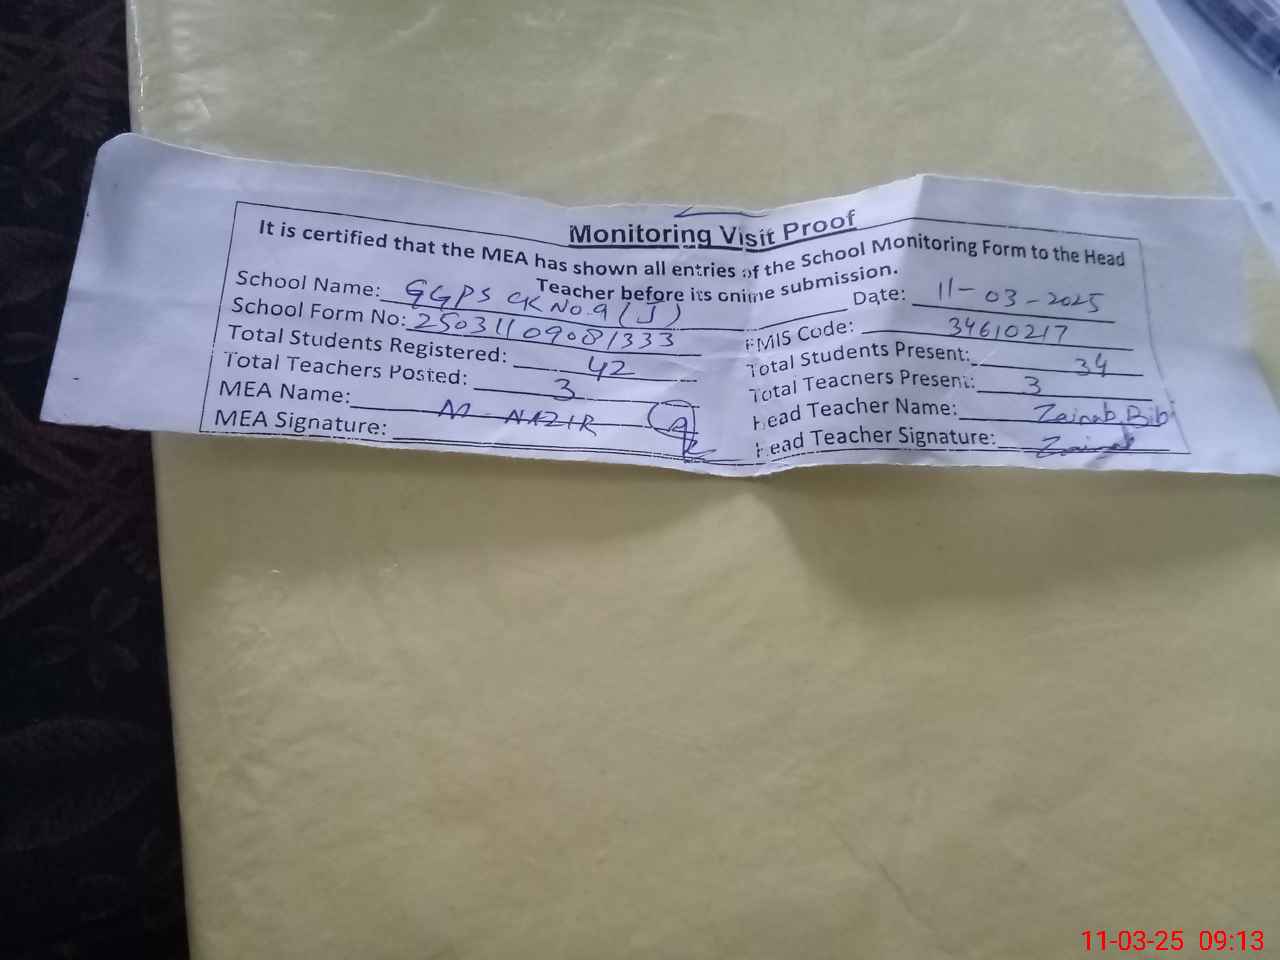 Monitoring Visit Proof
It is certified that the MEA has shown all entries of the School Monitoring Form to the Head
Teacher before its online submission.
School Name: GGPS CK No.9 (J) Date: 11-03-2025
School Form No: 25031109081333 EMIS Code: 34610217
Total Students Registered: 42 Total Students Present: 34
Total Teachers Posted: 3 Total Teachers Present: 3
MEA Name: M-NAZIR Head Teacher Name: Zainab Bibi
MEA Signature: Head Teacher Signature: Zainab
11-03-25 09:13